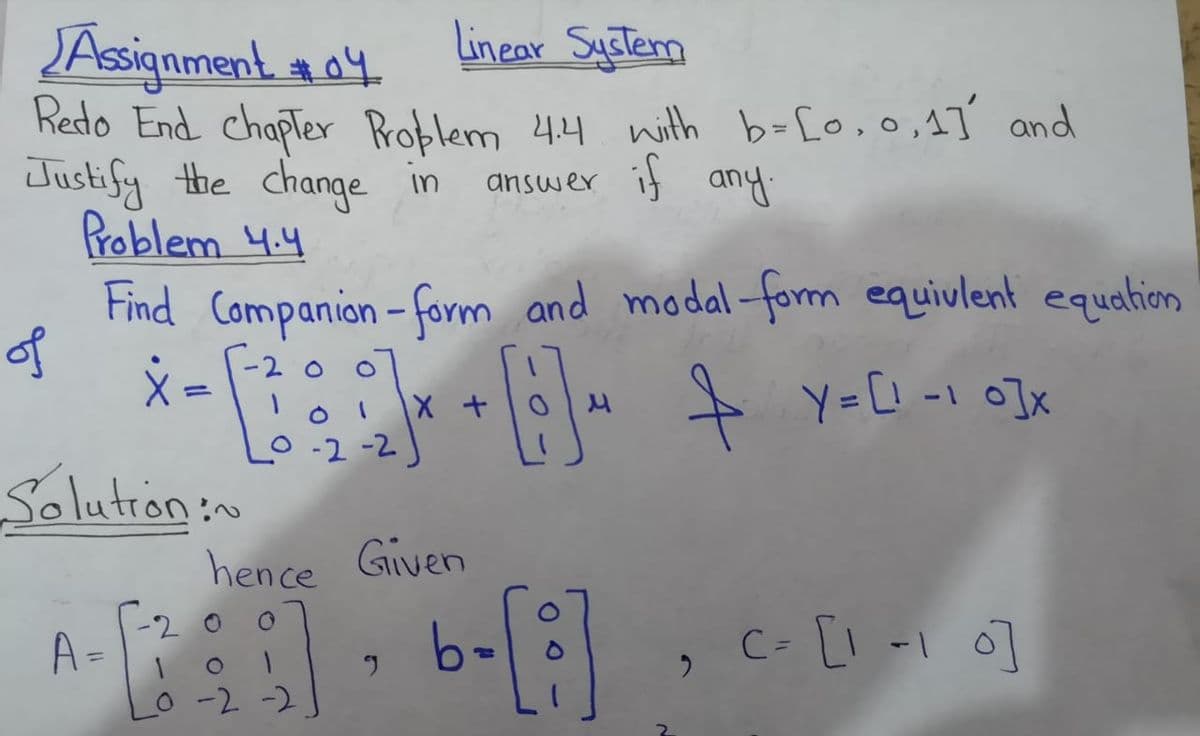 Assignment # 04 Linear System
Redo End chapter Problem 4.4 with b=[0, 0, 1]' and
Justify the change in answer if any.
Problem 4.4
Find Companion-form and modal-form equivlent equation
of
Ẋ = [-2 0 0; 1 0 1; 0 -2 -2] x + [1; 0; 1] u & Y = [1 -1 0]x
Solution:~
hence Given
A = [-2 0 0; 1 0 1; 0 -2 -2] , b = [0; 0; 1] , C = [1 -1 0]